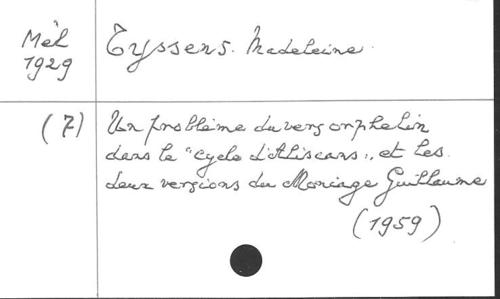 Mél
1929
Tyssens. Madeleine.
(7)
Un problème du vers orphelin
dans le "Cycle d'Aliscans", et les
deux versions du Moniage Guillaume
(1959)